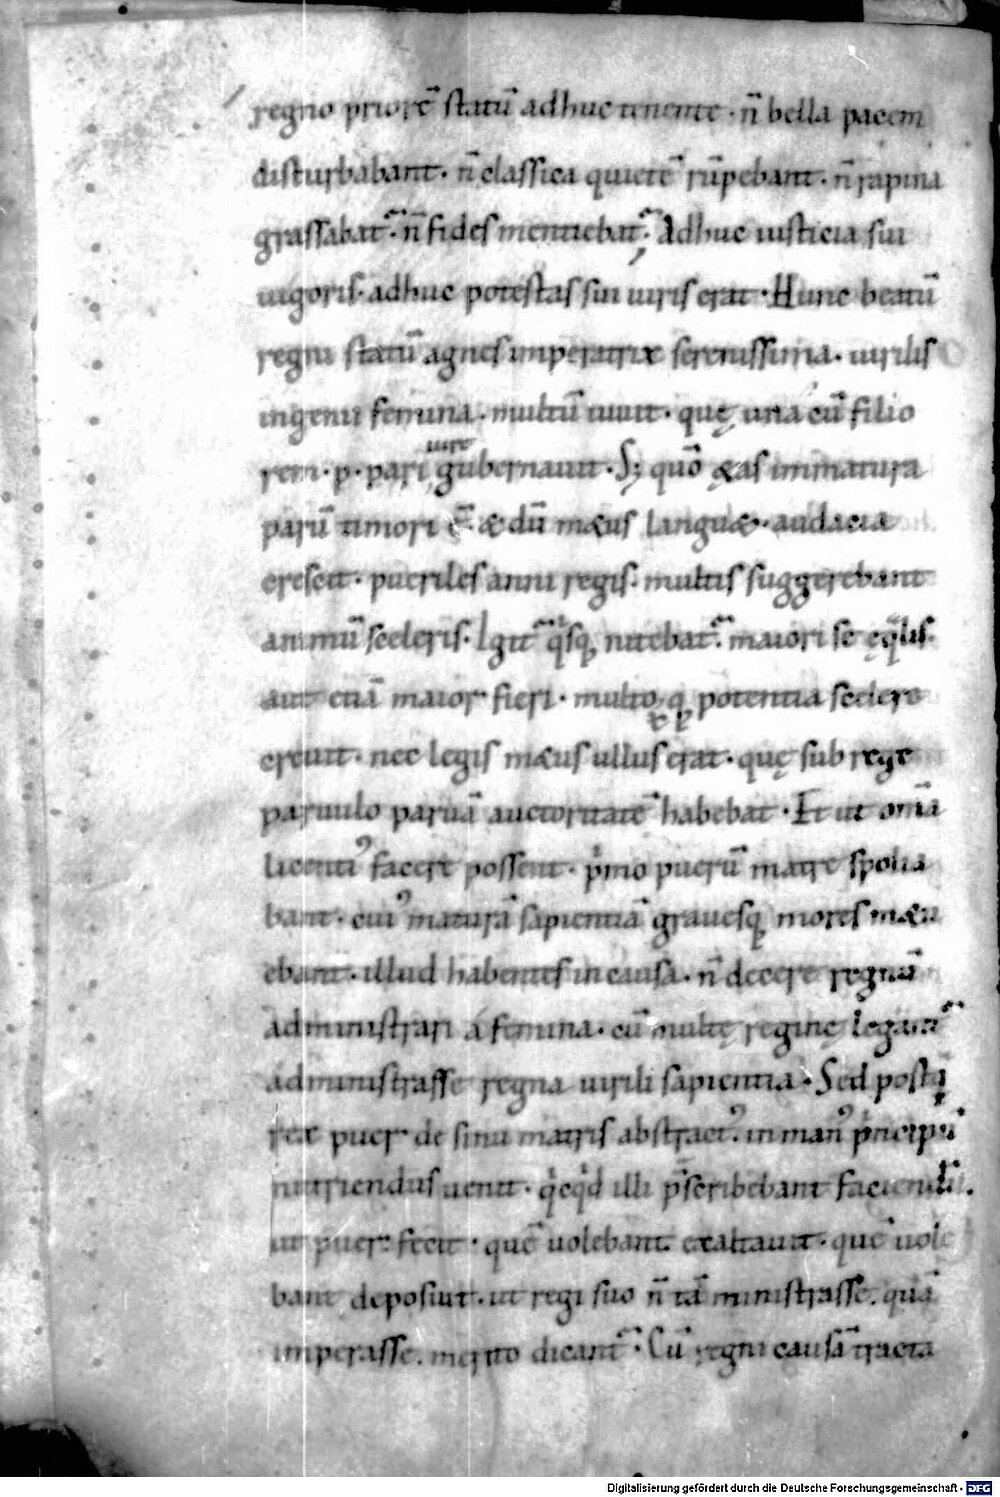 regno priorē statū adhuc tenente · n̄ bella pacem
disturbabant · n̄ classica quietē rūpebant · n̄ rapina
grassabat᷒ · n̄ fides mentiebat᷒ · Adhuc iusticia sui
uigoris · adhuc potestas sui iuris erat · Hunc beatū
regni statū agnes imperatrix serenissima · uirilis
ingenii femina · multū iuuit · quę una cū filio
rem · p · pari iure gubernauit · Sꝫ quō ętas immatura
parū timori ē · & dū metus languet · audacia
crescit · pueriles anni regis · multis suggerebant
animū sceleris · Igit᷒ qͥsq; nitebat᷒ maiori se ęq̄lis ·
aut etiā maior fieri · multoꝝq; potentia scelere
creuit · nec legis metus ullus erat · quę sub rege
paruulo paruā auctoritatē habebat · Et ut om̄ia
licentiꝰ facere possent · pͥmo puerū matre spolia
bant · cuiꝰ maturā sapientiā grauesq; mores metu
ebant · illud habentes in causa · n̄ decere regnū
administrari á femina · cū multę reginę legant᷒
administrasse regna uirili sapientia · Sed postq̄
rex puer de sinu matris abstractꝰ · in manꝰ pͥncipū
nutriendus uenit · qͥcqͥd illi p̄scribebant faciendū ·
ut puer fecit · quē uolebant exaltauit · quē uole
bant deposuit · ut regi suo n̄ tā ministrasse · quā
imperasse · merito dicant᷒ · Cū regni causā tracta
Digitalisierung gefördert durch die Deutsche Forschungsgemeinschaft - DFG